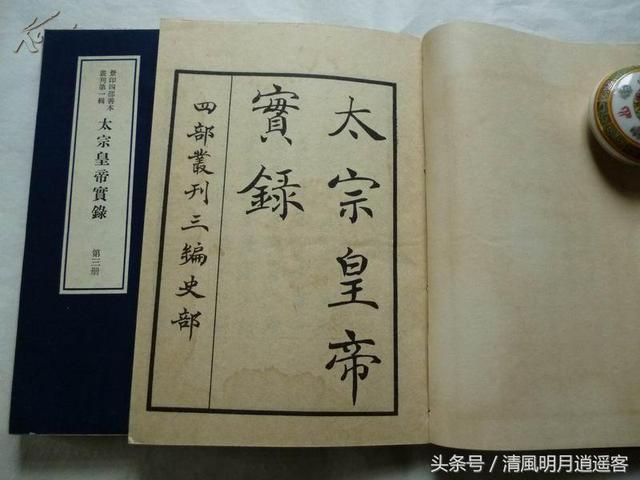 景印四部善本
叢刊第一輯
太宗皇帝實錄
第三册
太宗皇帝
實録
四部叢刊三編史部
头条号／清風明月逍遥客